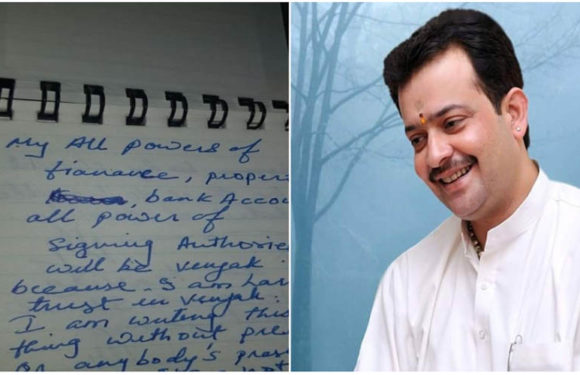 My All Powers of
finance, proper
, bank Accou
all power of
Signing Authorie
will be Venyak.
because. I am ha
trust in Venyak.
I am writing this
thing without pre
or anybody's pres